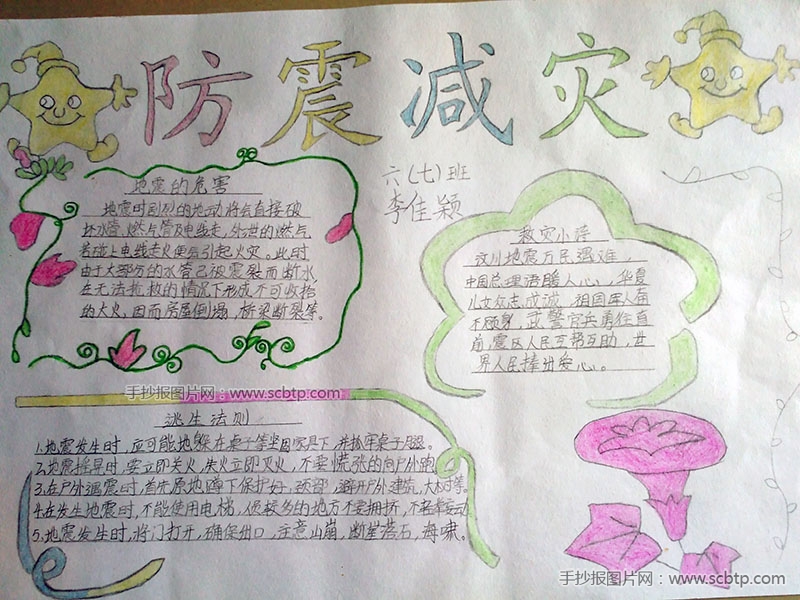 防震减灾
六(七)班
李佳颖
地震的危害
地震时剧烈的地动将会直接破
坏水管,燃气管及电线走,外泄的燃气
若碰上电线走火便会引起火灾。此时
由于大部分的水管已被震裂而断水,
在无法抢救的情况下形成不可收拾
的大火,因而房屋倒塌,桥梁断裂等。
救灾小诗
汶川地震万民遇难,
中国总理语暖人心,华夏
儿女众志成诚,祖国军人奋
不顾身,武警官兵勇往直
前,震区人民互帮互助,世
界人民捧出爱心。
手抄报图片网:www.scbtp.com
逃生法则
1.地震发生时,应可能地躲在桌子等坚固家具下,并抓牢桌子
2.地震摇晃时,要立即关火,失火立即灭火,不要慌张的向户外跑
3.在户外遇震时,首先原地蹲下保护好,颈部,避开户外建筑,大树等。
4.在发生地震时,不能使用电梯,人较多的地方不要拥挤,不轻率妄动
5.地震发生时,将门打开,确保出口,注意山崩,断崖落石,海啸。
手抄报图片网:www.scbtp.com